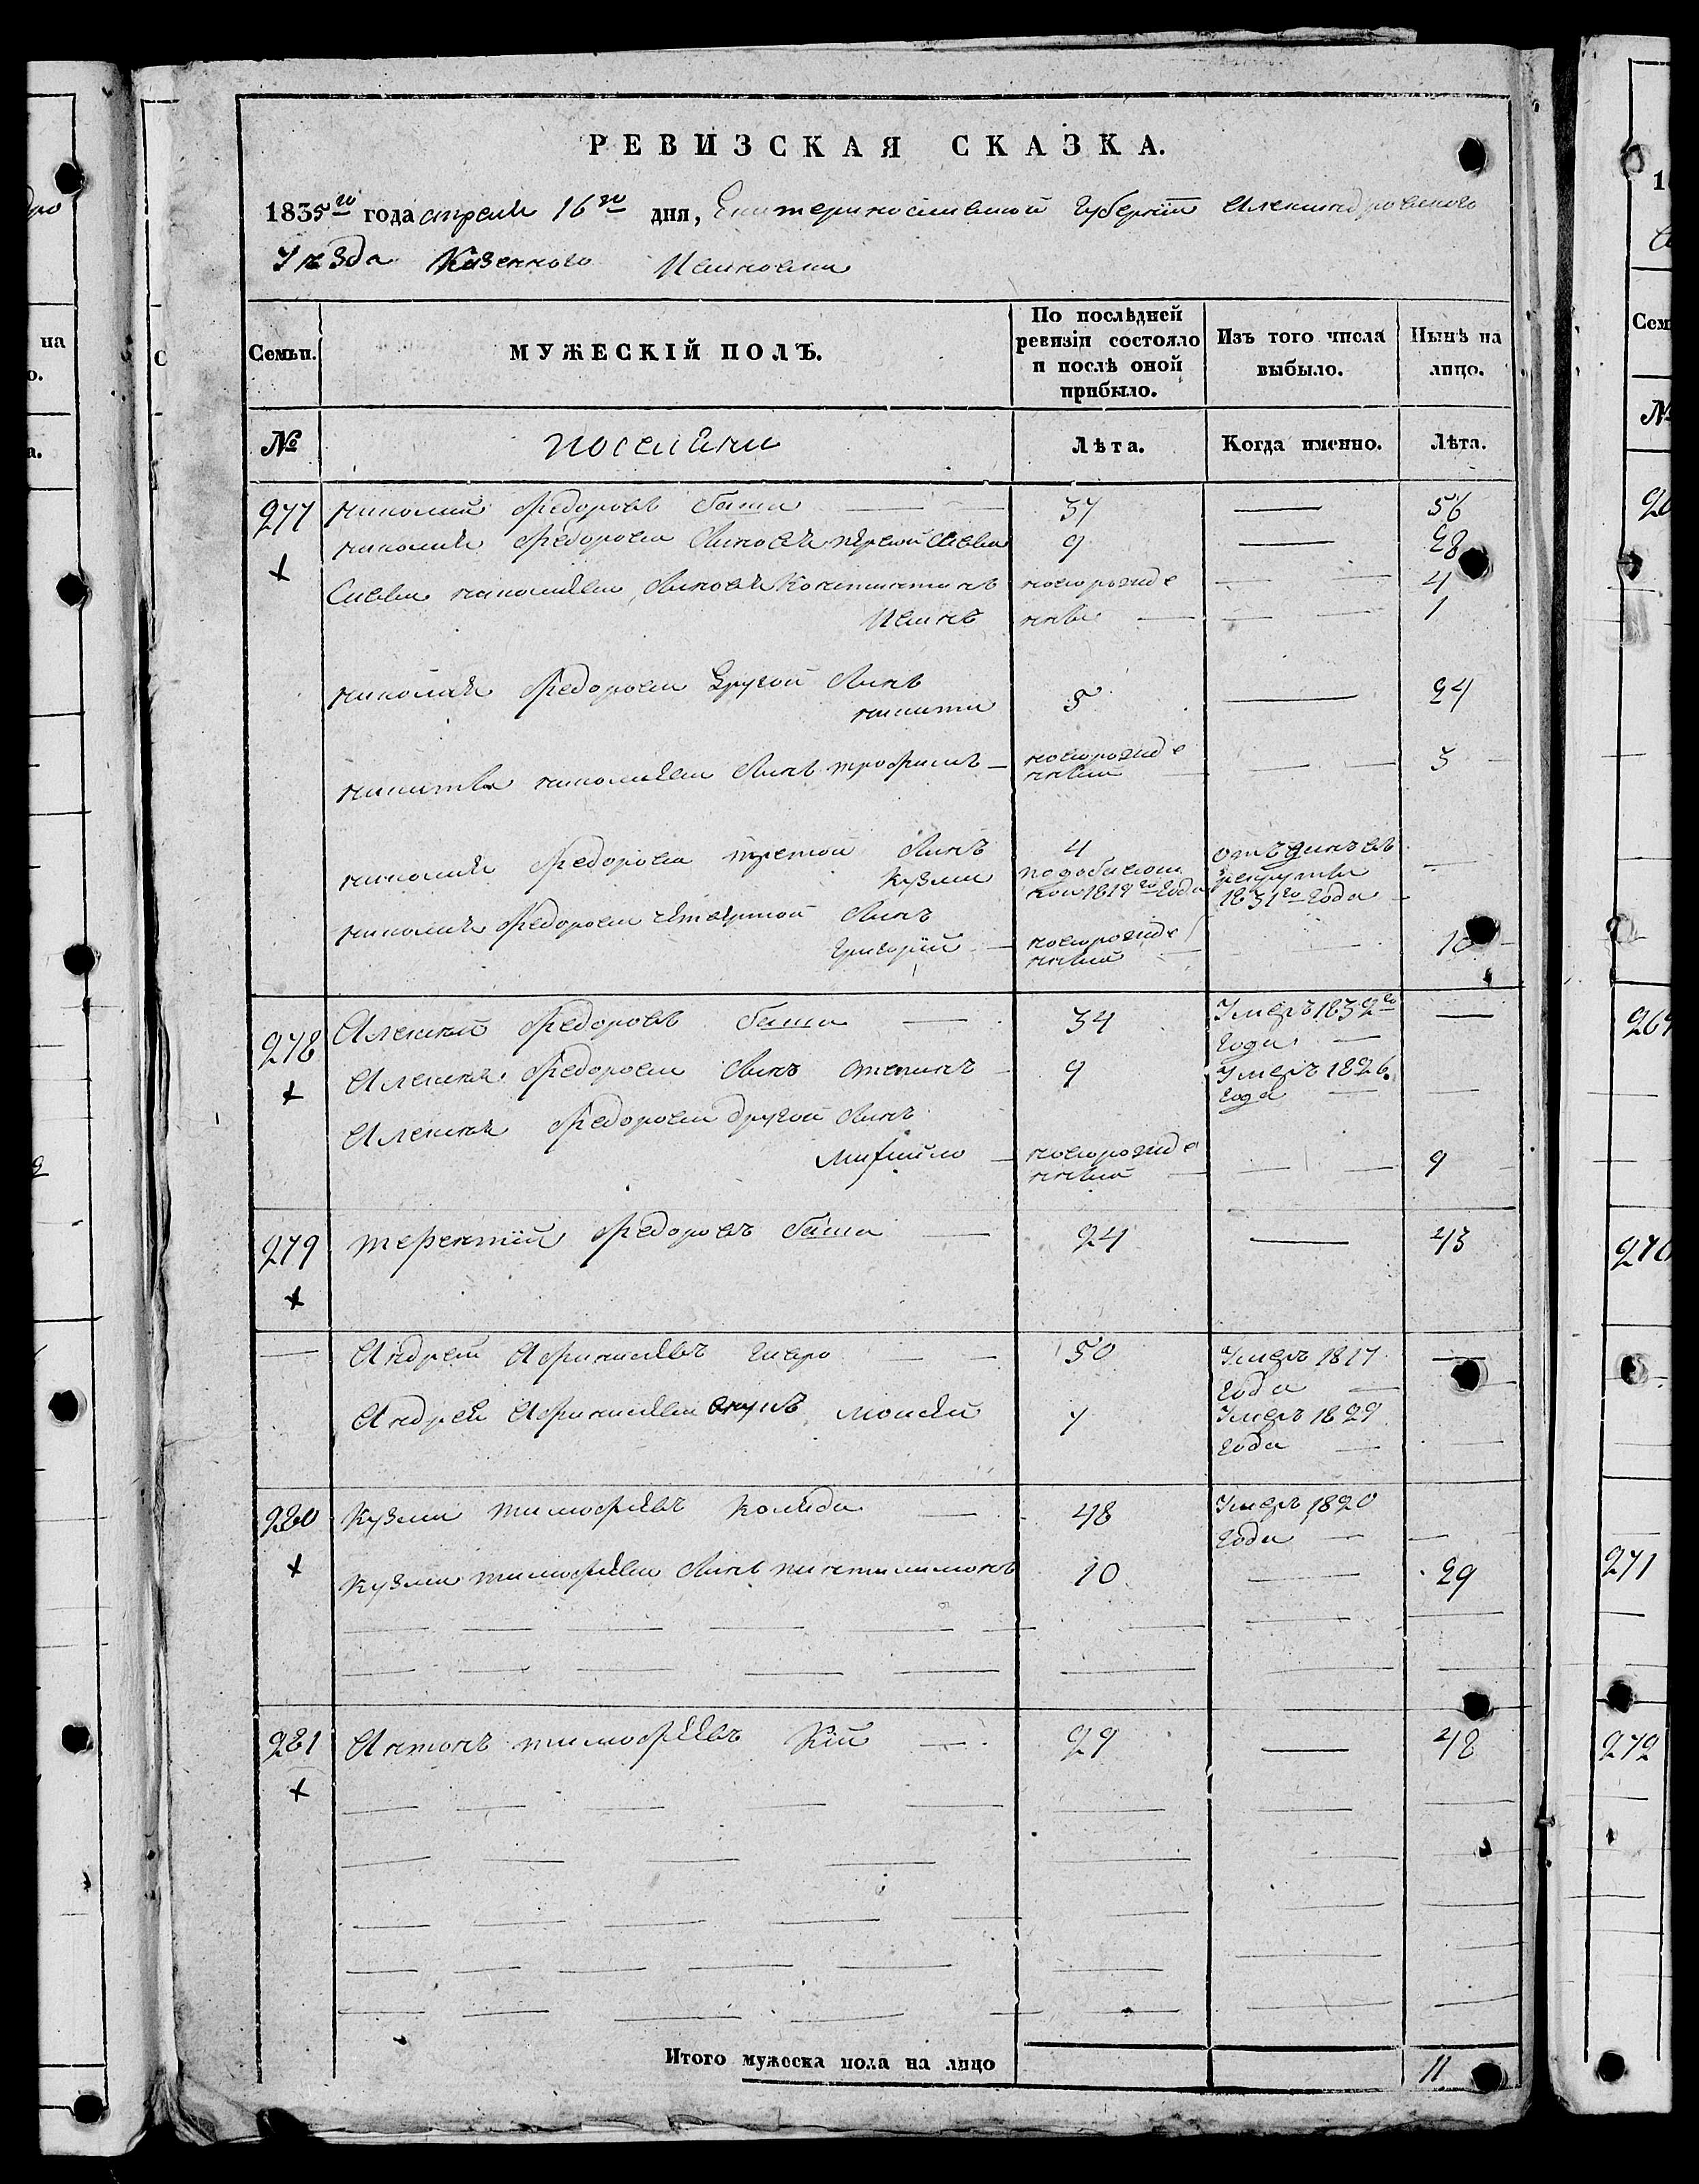 РЕВИЗСКАЯ СКАЗКА.
1835го года апреля 16го дня, Екатеринославской Губерніи Александровскаго
Уезда Казенного
Семьи.
МУЖЕСКІЙ ПОЛЪ.
По послѣдней ревизіи состояло и послѣ оной прибыло.
Изъ того числа выбыло.
Нынѣ на лицо.
№
поселяни
Лѣта.
Когда именно.
Лѣта.
277 Николай Федоровъ Баша 37 — 56
Николая Федорова Синовя первой Савва 9 — 28
Саввы Николаева Синовя Константинъ новорожде — 4
Иванъ нные — 1
Николая Федорова Другой Синъ
Никита 5 — 24
Никиты Николаева Синъ трофимъ новорожде нный — 3
Николая Федорова третой Синъ 4
Кузма 1819го года рекруты 1831го года —
Николая Федорова четвертой Синъ
Григорій новорожде нный — 10
278 Алексей Федоровъ Баша 34 Умеръ 1832го года —
Алексея Федорова Синъ Степанъ 9 Умеръ 1826. года —
Алексея Федорова другой Синъ
Михайло новорожде нный — 9
279 терентій Федоровъ Баша 24 — 43
— Андрей Афанасіевъ 50 Умеръ 1817 года —
Андрея Афанасіева внукъ Моисей 7 Умеръ 1829 года —
280 Кузма тимофеевъ Коляда 48 Умеръ 1820 года —
Кузмы тимофеева Синъ пантилимонъ 10 — 29
281 Антонъ тимофеевъ Кій 29 — 48
Итого мужеска пола на лицо 11
на
о.
а.
Сем
№
269
270
271
272